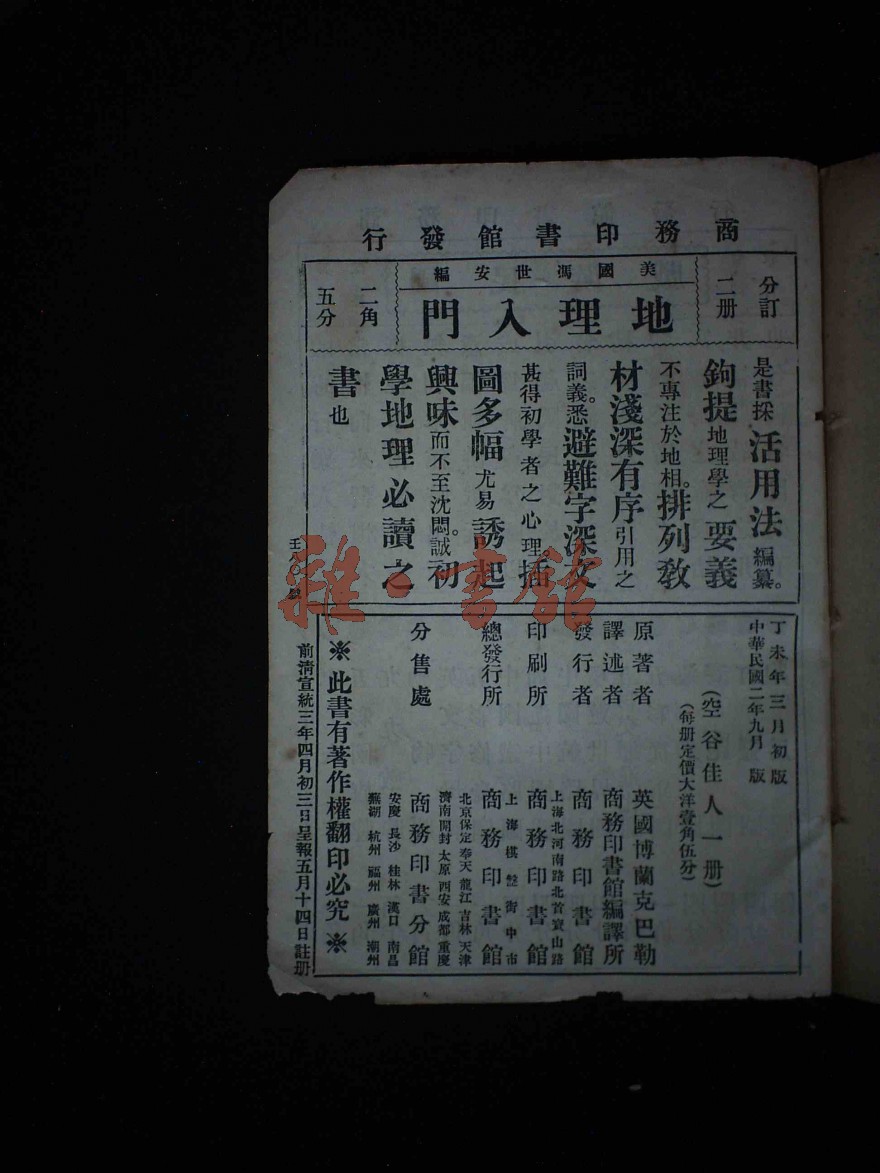 商務印書館發行
分訂
二册
美國馮世安編
地理入門
二角
五分
是書採活用法編纂。
鉤提地理學之要義
不專注於地相。排列敎
材淺深有序引用之
詞義。悉避難字深文
甚得初學者之心理。插
圖多幅尤易誘起
興味而不至沈悶。誠初
學地理必讀之
書也
丁未年三月初版
中華民國二年九月 版
(空谷佳人一册)
(每册定價大洋壹角伍分)
原著者 英國博蘭克巴勒
譯述者 商務印書館編譯所
發行者 商務印書館
上海北河南路北首寶山路
印刷所 商務印書館
上海棋盤街中市
總發行所 商務印書館
北京保定奉天龍江吉林天津
濟南開封太原西安成都重慶
分售處 商務印書分館
安慶長沙桂林漢口南昌
蕪湖杭州福州廣州潮州
※此書有著作權翻印必究※
前清宣統三年四月初三日呈報五月十四日註册
雜·書館